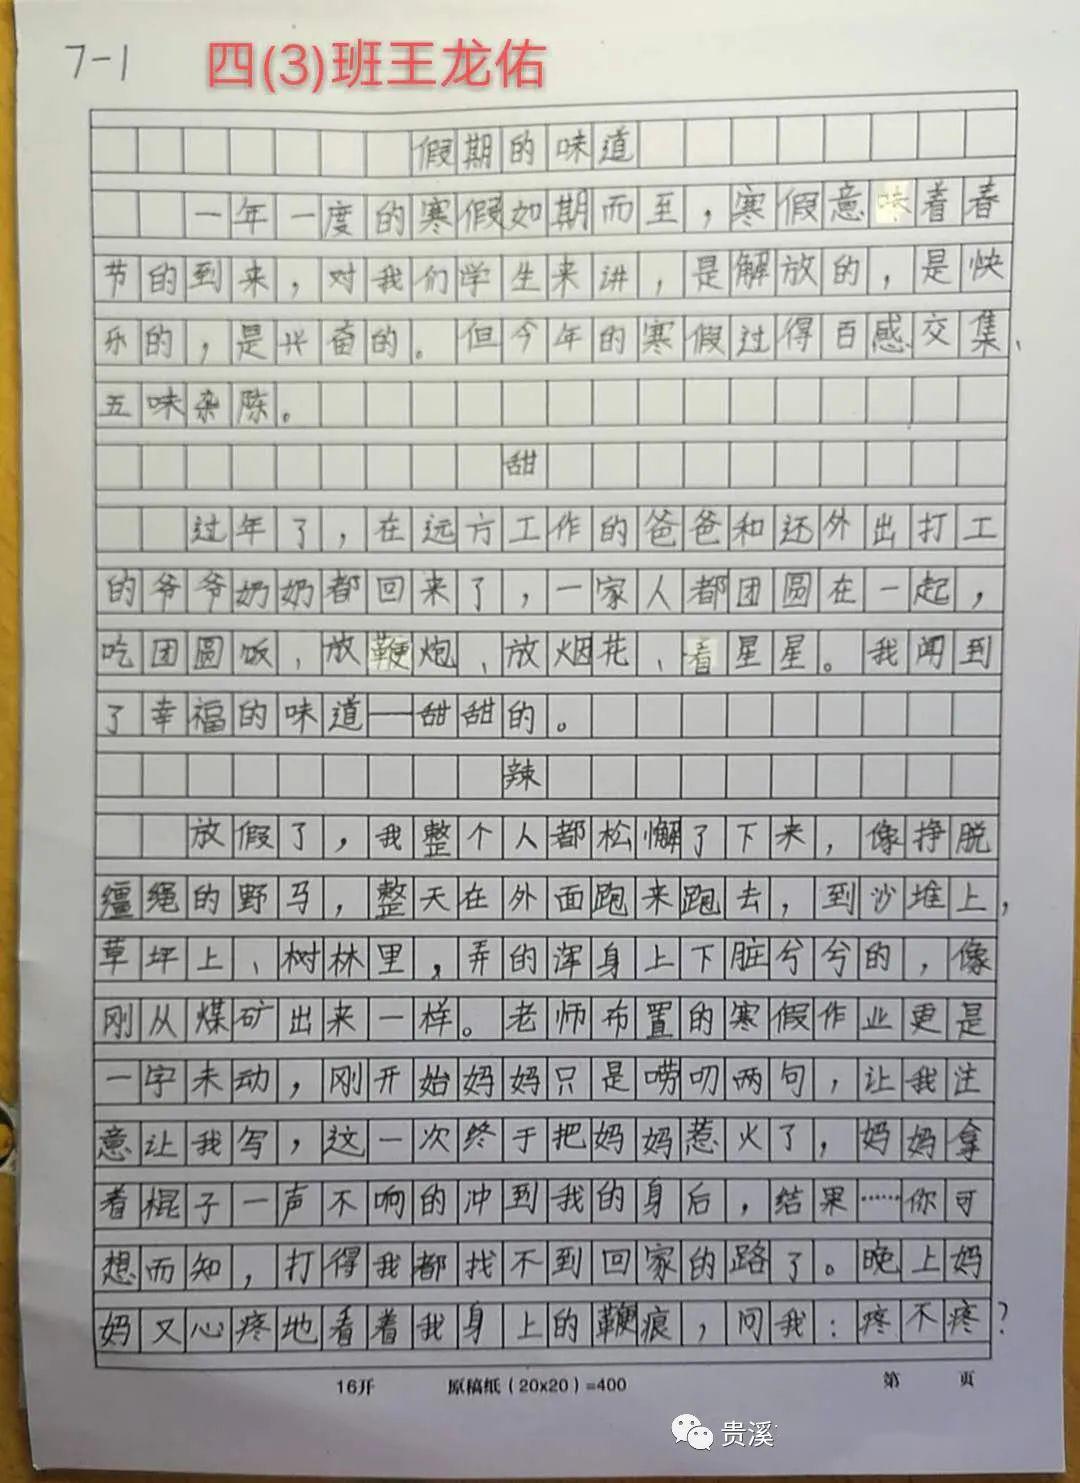 7-1
四(3)班王龙佑
假期的味道
一年一度的寒假如期而至，寒假意味着春
节的到来，对我们学生来讲，是解放的，是快
乐的，是兴奋的。但今年的寒假过得百感交集、
五味杂陈。
甜
过年了，在远方工作的爸爸和还外出打工
的爷爷奶奶都回来了，一家人都团圆在一起，
吃团圆饭、放鞭炮、放烟花、看星星。我闻到
了幸福的味道——甜甜的。
辣
放假了，我整个人都松懈了下来，像挣脱
缰绳的野马，整天在外面跑来跑去，到沙堆上，
草坪上、树林里，弄的浑身上下脏兮兮的，像
刚从煤矿出来一样。老师布置的寒假作业更是
一字未动，刚开始妈妈只是唠叨两句，让我注
意让我写，这一次终于把妈妈惹火了，妈妈拿
着棍子一声不响的冲到我的身后，结果……你可
想而知，打得我都找不到回家的路了。晚上妈
妈又心疼地看着我身上的鞭痕，问我：疼不疼？
16开 原稿纸（20x20）=400 第 页
贵溪